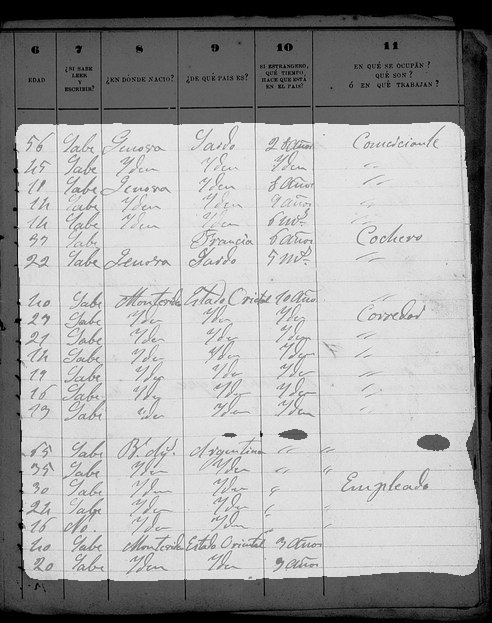 6 7 8 9 10 11
EDAD ¿SI SABE LEER Y ESCRIBIR? ¿EN DÓNDE NACIÓ? ¿DE QUÉ PAIS ES? SI ESTRANGERO, QUÉ TIEMPO HACE QUE ESTÁ EN EL PAIS? EN QUÉ SE OCUPAN? QUÉ SON? Ó EN QUÉ TRABAJAN?
56 Sabe Genova Sardo 28 Años Comerciante
45 Sabe Yden Yden Yden "
18 Sabe Genova Yden 8 Años "
14 Sabe Yden Yden 8 Años "
14 Sabe Yden Yden 6 ms. "
37 Sabe Francia 6 Años Cochero
22 Sabe Genova Sardo 5 ms. "
40 Sabe Montevdo Estado Orietal 10 Años "
27 Sabe Yden Yden Yden Corredor
21 Sabe Yden Yden Yden "
14 Sabe Yden Yden Yden "
19 Sabe Yden Yden Yden "
16 Sabe Yden Yden Yden "
13 Sabe Yden Yden Yden "
65 Sabe Argentina " "
35 Sabe Yden Yden " "
30 Sabe Yden Yden " Empleado
24 Sabe Yden Yden " "
16 No. Yden Yden " "
40 Sabe Montevdo Estado Oriental 3 Años
20 Sabe Yden Yden 3 Años